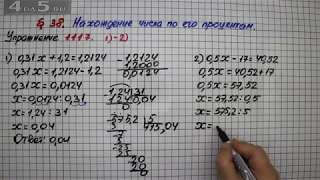 4APDS.RU
§ 38. Нахождение числа по его процентам.
Упражнение 1117. 1)-2)
1) 0,31x + 1,2 = 1,2124
0,31x = 1,2124 - 1,2
0,31x = 0,0124
x = 0,0124 : 0,31
x = 1,24 : 31
x = 0,04
Ответ: 0,04
1,2124
1,2000
0,0124
1,24 31
124 0,04
0
575,2 5
5 115,04
7
5
25
25
20
20
0
2) 0,5x - 17 = 40,52
0,5x = 40,52 + 17
0,5x = 57,52
x = 57,52 : 0,5
x = 575,2 : 5
x =